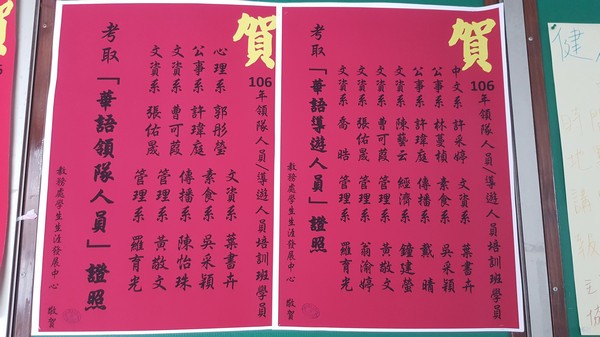 健
賀
106年領隊人員/導遊人員培訓班學員
中文系 許采婷 文資系 葉書卉
公事系 林蔓楨 素食系 吳采穎
公事系 許瑋庭 傳播系 戴晴
文資系 陳藝云 經濟系 鐘建瑩
文資系 曹可葭 管理系 黃敬文
文資系 張佑晟 管理系 翁渝婷
文資系 喬晧 管理系 羅育光
考取「華語導遊人員」證照
教務處學生生涯發展中心 敬賀
賀
106年領隊人員/導遊人員培訓班學員
心理系 郭彤瑩 文資系 葉書卉
公事系 許瑋庭 素食系 吳采穎
文資系 曹可葭 傳播系 陳怡珠
文資系 張佑晟 管理系 黃敬文
管理系 羅育光
考取「華語領隊人員」證照
教務處學生生涯發展中心 敬賀